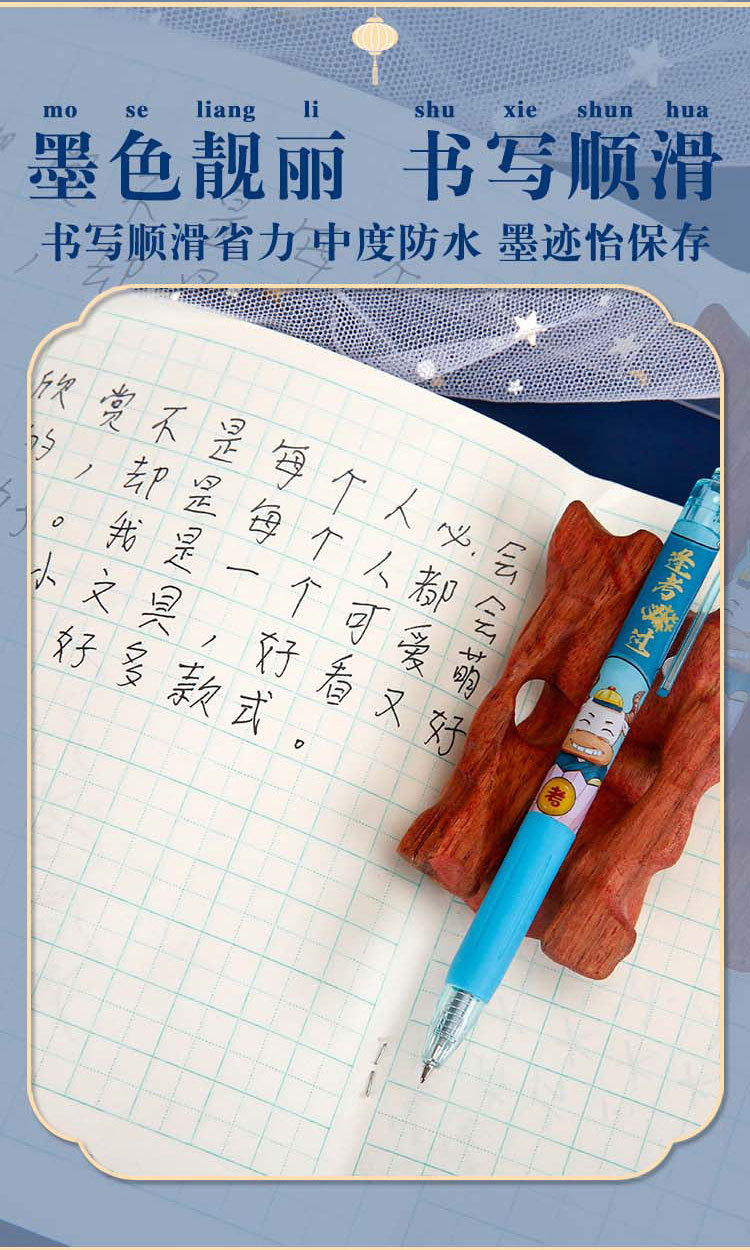 mo se liang li shu xie shun hua
墨色靓丽 书写顺滑
书写顺滑省力 中度防水 墨迹怡保存
欣赏不是每个人必会
的，却是每个人都会
。我是一个可爱萌
小文具，好看又好
好多款式。
逢考必过
考